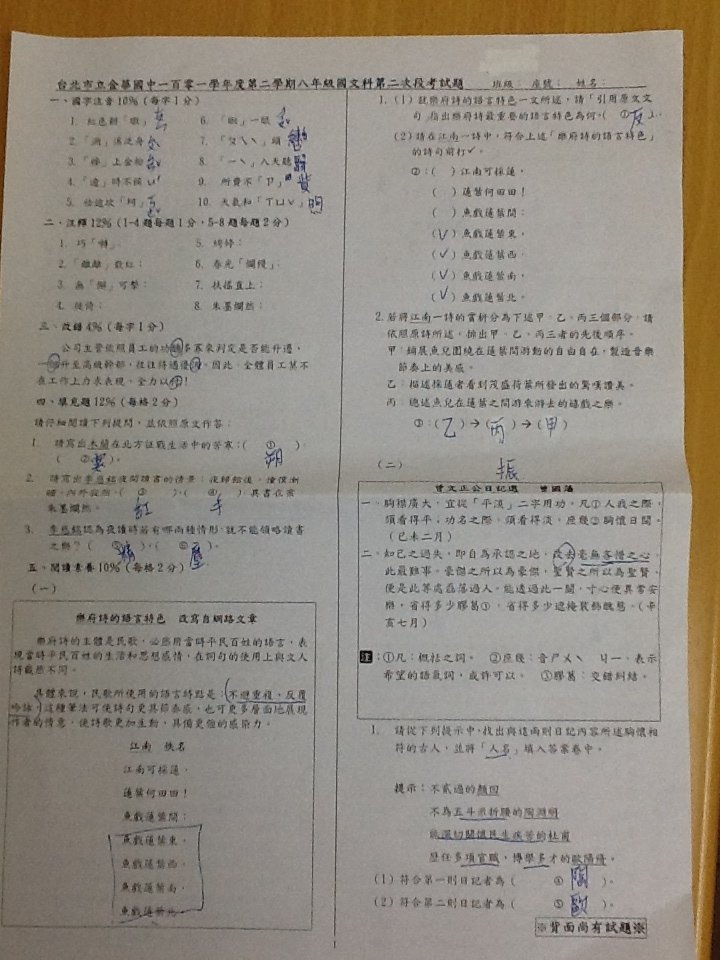 台北市立金華國中一百零一學年度第二學期八年級國文科第二次段考試題 班級： 座號： 姓名：
一、國字注音 10%（每字1分）
1. 紅色餅「
6. 「瞅」一眼
2. 「
3. 「
上金粉
8. 「ㄧˋ」八天聽
4. 「
」時不候
9. 所費不「ㄗ
5. 
坎「坷」
10. 天氣和「ㄒㄩˇ」
二、注釋 12%（1-4題每題1分，5-8題每題2分）
1. 巧「囀」：
5. 娉婷：
2. 「離離」散紅：
6. 春光「爛熳」：
3. 無「懈」可擊：
7. 扶搖直上：
4. 徙倚：
8. 朱墨爛然：
三、改錯 4%（每字1分）
公司主管依照員工的功
多寡來判定是否能升遷，
升至高級幹部，往往得過
。因此，全體員工莫不
在工作上力求表現，全力以
！
四、填充題 12%（每格2分）
請仔細閱讀下列提問，並依照原文作答：
1. 請寫出木蘭在北方征戰生活中的苦寒：（ ① ）、
（ ②寒）。 朔
2. 請寫出李慈銘夜間讀書的情景：夜歸館後，僮僕漸
睡，內外寂然，（ ③ ）、（ ④ ），異書在案，
朱墨爛然。 紅 牛
3. 李慈銘認為夜讀時若有哪兩種情形，就不能領略讀書
之樂？（ ⑤ ）、（ ⑥ ）。
五、閱讀素養 10%（每格2分）
（一）
樂府詩的語言特色 改寫自網路文章
樂府詩的主體是民歌，必應用當時平民百姓的語言，表
現當時平民百姓的生活和思想感情，在詞句的使用上與文人
詩截然不同。
具體來說，民歌所使用的語言特點是：不避重複，反覆
吟詠，這種筆法可使詩句更具節奏感，也可更多層面地展現
作者的情意，使詩歌更加生動，具備更強的感染力。
江南 佚名
江南可採蓮，
蓮葉何田田！
魚戲蓮葉間：
魚戲蓮葉東，
魚戲蓮葉西，
魚戲蓮葉南，
魚戲蓮葉北。
1.（1）就樂府詩的語言特色一文所述，請「引用原文文
句」指出樂府詩最重要的語言特色為何。（ ①反 ）。
（2）請在江南一詩中，符合上述「樂府詩的語言特色」
的詩句前打✓。
②：（ ）江南可採蓮，
（ ）蓮葉何田田！
（ ）魚戲蓮葉間：
（✓）魚戲蓮葉東，
（✓）魚戲蓮葉西，
（✓）魚戲蓮葉南，
（✓）魚戲蓮葉北。
2. 若將江南一詩的賞析分為下述甲、乙、丙三個部分，請
依照原詩所述，排出甲、乙、丙三者的先後順序。
甲：鋪展魚兒圍繞在蓮葉間游動的自由自在，製造音樂
節奏上的美感。
乙：描述採蓮者看到茂盛荷葉所發出的驚嘆讚美。
丙：總述魚兒在蓮葉之間游來游去的嬉戲之樂。
③：（乙）→（丙）→（甲）
（二） 振
曾文正公日記選 曾國藩
一、胸襟廣大，宜從「平淡」二字用功，凡①人我之際，
須看得平；功名之際，須看得淡，庶幾②胸懷日闊。
（己未二月）
二、知己之過失，即自為承認之地，改去毫無吝惜之心，
此最難事。豪傑之所以為豪傑，聖賢之所以為聖賢，
便是此等處磊落過人。能透過此一關，寸心便異常安
樂，省得多少膠葛③，省得多少遮掩裝飾醜態。（辛
亥七月）
注：①凡：概括之詞。 ②庶幾：音ㄕㄨˋ ㄐㄧ，表示
希望的語氣詞，或許可以。 ③膠葛：交錯糾結。
1. 請從下列提示中，找出與這兩則日記內容所述胸懷相
符的古人，並將「人名」填入答案卷中。
提示：不貳過的顏回
不為五斗米折腰的陶淵明
懷民生疾苦的杜甫
歷任多項官職，博學多才的歐陽脩。
（1）符合第一則日記者為（ ④ 陶 ）。
（2）符合第二則日記者為（ ⑤ 歐 ）。
※背面尚有試題※
1